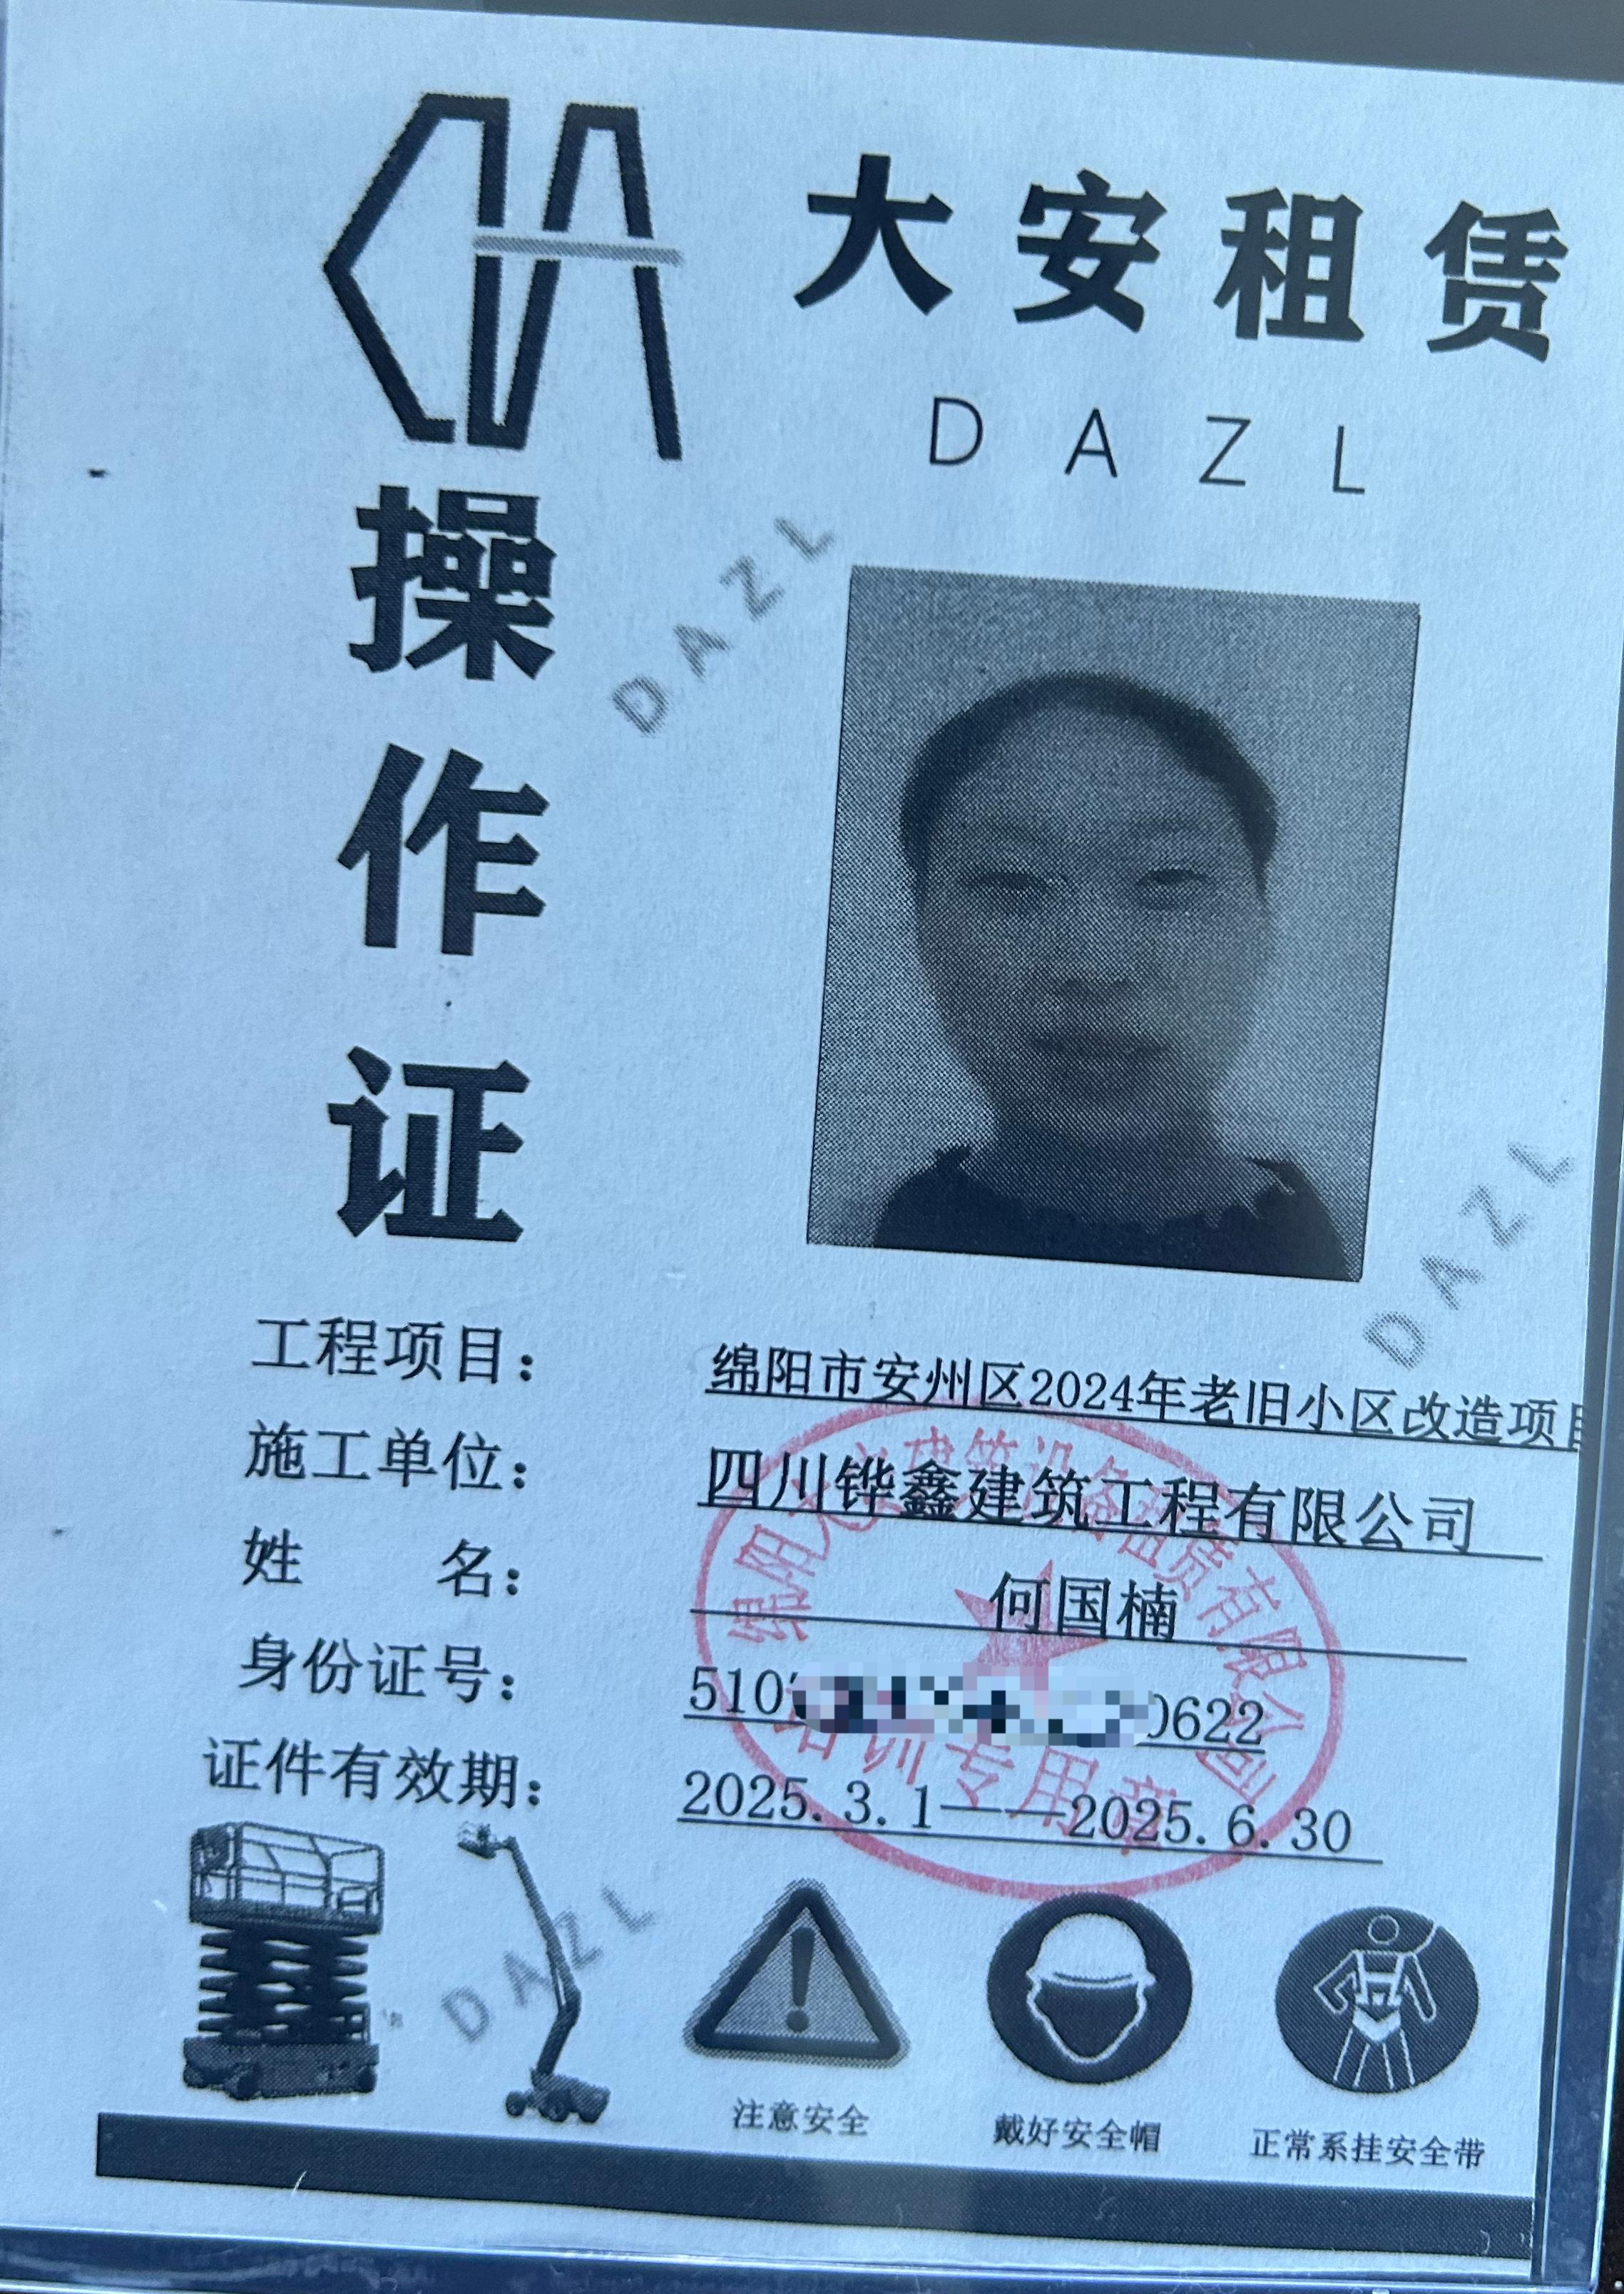 大安租赁
DAZL
操作证
DAZL
DAZL
工程项目：绵阳市安州区2024年老旧小区改造项目
施工单位：四川铧鑫建筑工程有限公司
姓 名：何国楠
身份证号：510 0622
证件有效期：2025.3.1——2025.6.30
绵阳 建筑设备租赁有限公司
培训专用章
DAZL
注意安全
戴好安全帽
正常系挂安全带